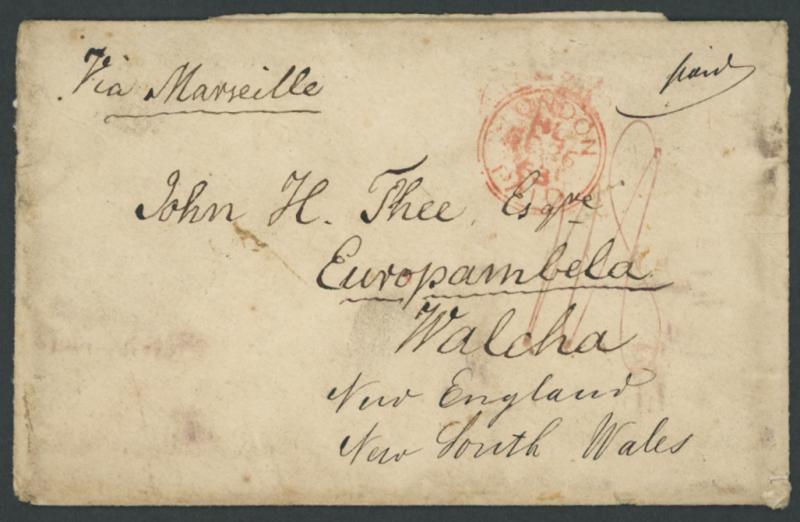 Via Marseille
paid
LONDON
PAID
John H. Thee, Esqre
Europambela
Walcha
New England
New South Wales